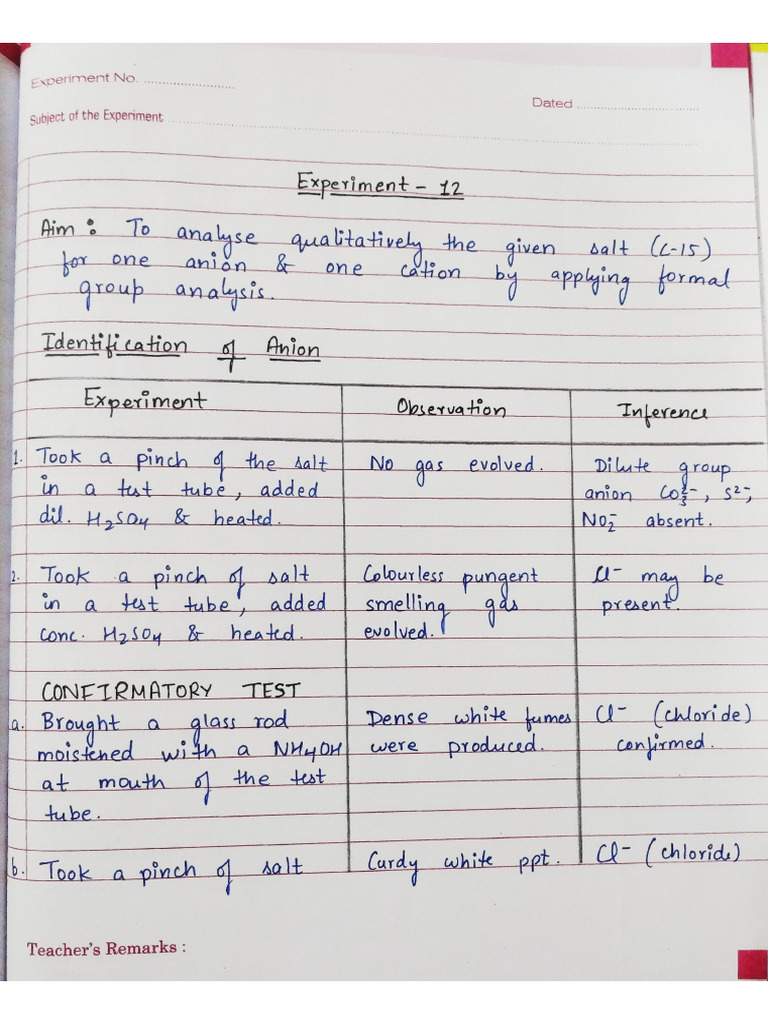 Experiment No. ............................
Dated ....................................
Subject of the Experiment ............................................................
Experiment - 12
Aim : To analyse qualitatively the given salt (C-15)
for one anion & one cation by applying formal
group analysis.
Identification of Anion
Experiment Observation Inference
1. Took a pinch of the salt No gas evolved. Dilute group
in a test tube, added anion CO₃²⁻, S²⁻,
dil. H₂SO₄ & heated. NO₂⁻ absent.
2. Took a pinch of salt Colourless pungent Cl⁻ may be
in a test tube, added smelling gas present.
conc. H₂SO₄ & heated. evolved.
CONFIRMATORY TEST
a. Brought a glass rod Dense white fumes Cl⁻ (chloride)
moistened with a NH₄OH were produced. confirmed.
at mouth of the test
tube.
b. Took a pinch of salt Curdy white ppt. Cl⁻ (chloride)
Teacher's Remarks :